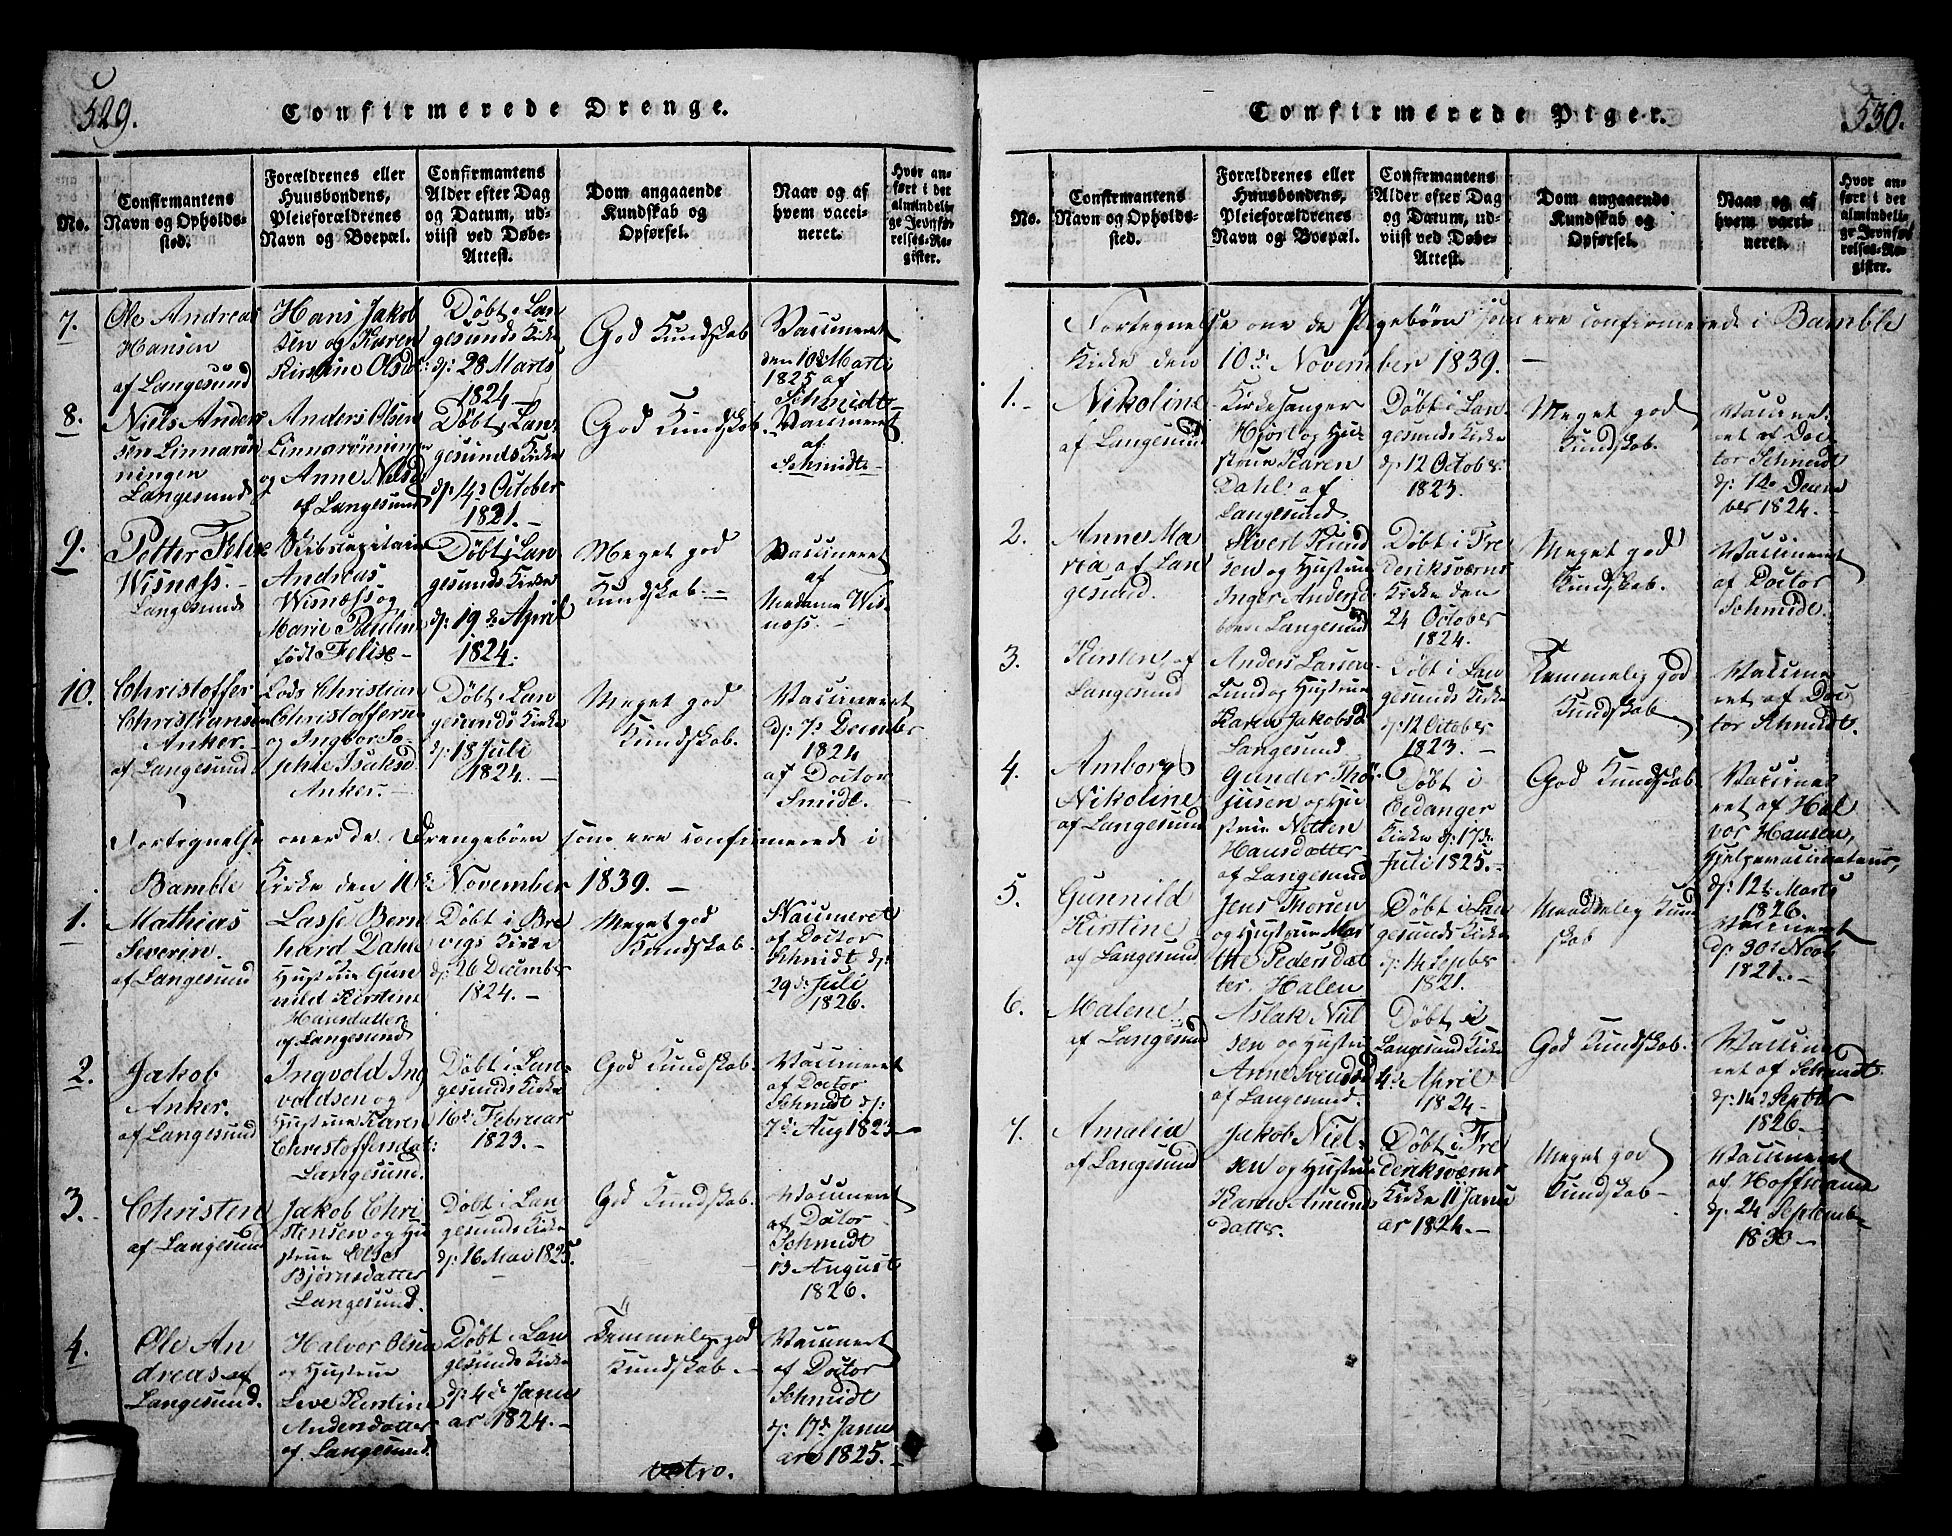 529.
Confirmerede Drenge.
No.
Confirmantens
Navn og Opholds-
sted.
Forældrenes eller
Huusbondens,
Pleieforældrenes
Navn og Boepæl.
Confirmantens
Alder efter Dag
og Datum, ud-
viist ved Døbe-
Attest.
Dom angaaende
Kundskab og
Opførsel.
Naar og af
hvem vacci-
neret.
Hvor an-
ført i det
almindeli-
ge Jevnfø-
relses-Re-
gister.
7.
Ole Andreas
Hansen
af Langesund
Hans Jakob
sen og Karen
Kirstine Olsd:
Døbt i Lan
gesunds Kirke
d: 28 Marts
1824 –
God Kundskab
Vaccineret
den 10de Marti
1825 af
Schmidt
8.
Niels Anders
sen Linnarön
ningen
Langesund
Anders Olsen
Linnarönningen
og Anne Nilsd
af Langesund
Døbt i Lan
gesunds Kirke
d: 14s October
1821. –
God Kundskab
Vaccineret
af
Schmidt –
9.
Petter Felix
Wisnæss. –
Langesund
Skibscapitain
Andreas
Wisnæss og
Marie Pauline
födt Felix –
Døbt i Lan
gesunds Kirke
d: 19de April
1824.
Meget god
Kundskab. –
Vaccineret
af
Madame Wis
næss. –
10.
Christoffer
Christiansen
Anker. –
af Langesund
Lods Christian
Christoffersen
og Ingbor So
phie Isaksd
Anker. –
Døbt i Lan
gesunds Kirke
d: 18 Juli
1824. –
Meget god
Kundskab.
Vaccineret
d: 7s December
1824
af Doctor
Smidt.
Fortegnelse over de Drengebørn som ere confirmerede i
Bamble Kirke den 10de November 1839. –
1.
Mathias
Severin.
af Langesund
Lasse Bern
hard Dahl
Hustrue Gun
nild Kirstine
Hansdatter
af Langesund
Døbt i Bre
vigs Kirke
d: 26 December
1824. –
Meget god
Kundskab.
Vaccineret
af Doctor
Schmidt d:
29de Juli
1826.
2.
Jakob
Anker.
af Langesund
Ingvold Ing
valdsen og
Hustrue Karen
Christoffersdat:
Langesund.
Døbt i Lan
gesunds Kirke
16de Februar
1823. –
God Kundskab.
Vaccineret
af Doctor
Schmidt d:
7de Aug 1823 –
3.
Christen
af Langesund
Jakob Chri
stensen og Hu
strue Else
Bjørnsdatter
Langesund.
Døbt i Lan
gesunds Kirke
d: 16 Mai 1825.
God Kundskab.
Vaccineret
af Doctor
Schmidt
13 August
1826.
4.
Ole An
dreas af
Langesund.
Halvor Olsen
og Hustrue
Live Kirstine
Andersdatter
af Langesund.
Døbt i Lan
gesunds Kirke
d: 4de Janu
ar 1824. –
Temmelig god
Kundskab. –
Vaccineret
af Doctor
Schmidt
d: 17de Janu
ari 1825. –
530.
Confirmerede Piger.
No.
Confirmantens
Navn og Opholds-
sted.
Forældrenes eller
Huusbondens,
Pleieforældrenes
Navn og Boepæl.
Confirmantens
Alder efter Dag
og Datum, ud-
viist ved Døbe-
Attest.
Dom angaaende
Kundskab og
Opførsel.
Naar og af
hvem vacci-
neret.
Hvor an-
ført i det
almindeli-
ge Jevnfø-
relses-Re-
gister.
Fortegnelse over de Pigebörn som ere confirmerede i Bamble
Kirke den 10de November 1839. –
1. –
Nikoline
af Langesund
Kirkesanger
Hjört og Hu
strue Karen
Dahl af
Langesund
Døbt i Lan
gesunds Kirke
d: 12 October
1823.
Meget god
Kundskab.
Vaccine
ret af Doc
tor Schmidt
d: 14de Decem
ber 1824. –
2.
Anne Ma
ria af Lan
gesund.
Sivert Knud
sen og Hustrue
Inger Anders
Langesund
Døbt i Fre
deriksværns
Kirke den
24 October
1824.
Meget god
Kundskab.
Vaccineret
af Doctor
Schmidt.
3.
Kirsten af
Langesund
Anders Larsen
Lund og Hustrue
Karen Jakobsd
Langesund
Døbt i Lan
gesunds Kirke
d: 12 October
1823. –
Temmelig god
Kundskab
Vaccine
ret af Doc
tor Schmidt.
4.
Amborg
Nikoline
af Langesund
Gunder Thör
jusen og Hu
strue Netten
Hansdatter
af Langesund
Døbt i
Eidanger
Kirke d: 17de
Juli 1825. –
God Kundskab
Vaccine
ret af Hal
vor Hansen,
Hjelpevaccinateur,
d: 12te Marts
1826.
5.
Gunnild
Kirstine
af Langesund
Jens Thorsen
og Hustrue Mar
the Pedersdat
ter Halen
Døbt i Lan
gesunds Kirke
d: 14 Septbr
1821.
Maadelig Kund
skab
Vaccineret
d: 30te Novbr
1821. –
6.
Malene
af Langesund
Aslak Niel
sen og Hustru
Anne Svendsd
af Langesund.
Døbt i
Langesund Kirke
4de April
1824 –
God Kundskab.
Vaccine
ret af Schmidt
d: 14de Septbr
1826 –
7.
Amalia
af Langesund
Jakob Niel
sen og Hustrue
Karen Amunds
datter.
Døbt i Fre
deriksværns
Kirke 11 Janu
ar 1824. –
Meget god
Kundskab –
Vaccineret
af Hoffmann
d: 24 Septemb
1830 –